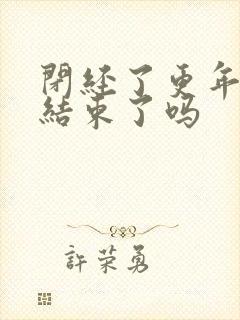 閉經了更年
結束了吗
許荣勇